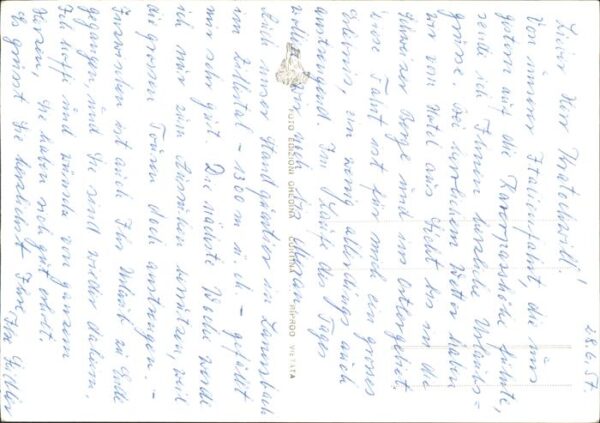 28.6.57.
Lieber Herr Kratochwill!
Von unserer Italienfahrt, die uns
gestern auf die Karerpasshöhe führte,
sende ich Ihnen herzliche Urlaubs=
grüsse. Bei herrlichem Wetter haben
wir vom Hotel aus Sicht bis in die
Schweizer Berge und ins Ortlergebiet.
Diese Fahrt ist für mich ein grosses
Erlebnis, ein wenig allerdings auch
anstrengend. Im Laufe des Tages
wollen wir noch bis Meran.
Auch unser Standquartier in Lannersbach
im Zillertal - 1300 m ü. M. - gefällt
mir sehr gut. Die nächste Woche werde
ich mir zum Ausruhen benützen, weil
die grossen Touren doch anstrengen. -
Inzwischen ist auch Ihr Urlaub zu Ende
gegangen, und Sie sind wieder daheim.
Ich hoffe und wünsche von ganzem
Herzen, Sie haben sich gut erholt.
Es grüsst Sie herzlichst Ihre
FOTO EDIZIONI GHEDINA - CORTINA - RIPROD. VIETATA